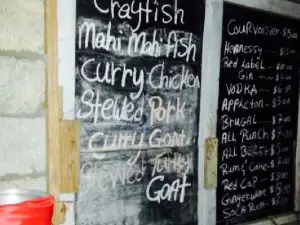 Crayfish
Mahi Mahi fish
Curry Chicken
Stewed Pork
Curry Goat
Stewed Turkey
Goat
Courvoisier $5.00
Hennessy
Red Label
Gin
Vodka
Appleton
Brugal
All Punch
All Beer
Rum & Coke
Red Cap $3.00
Gingerwine $5.00
Sock Rum